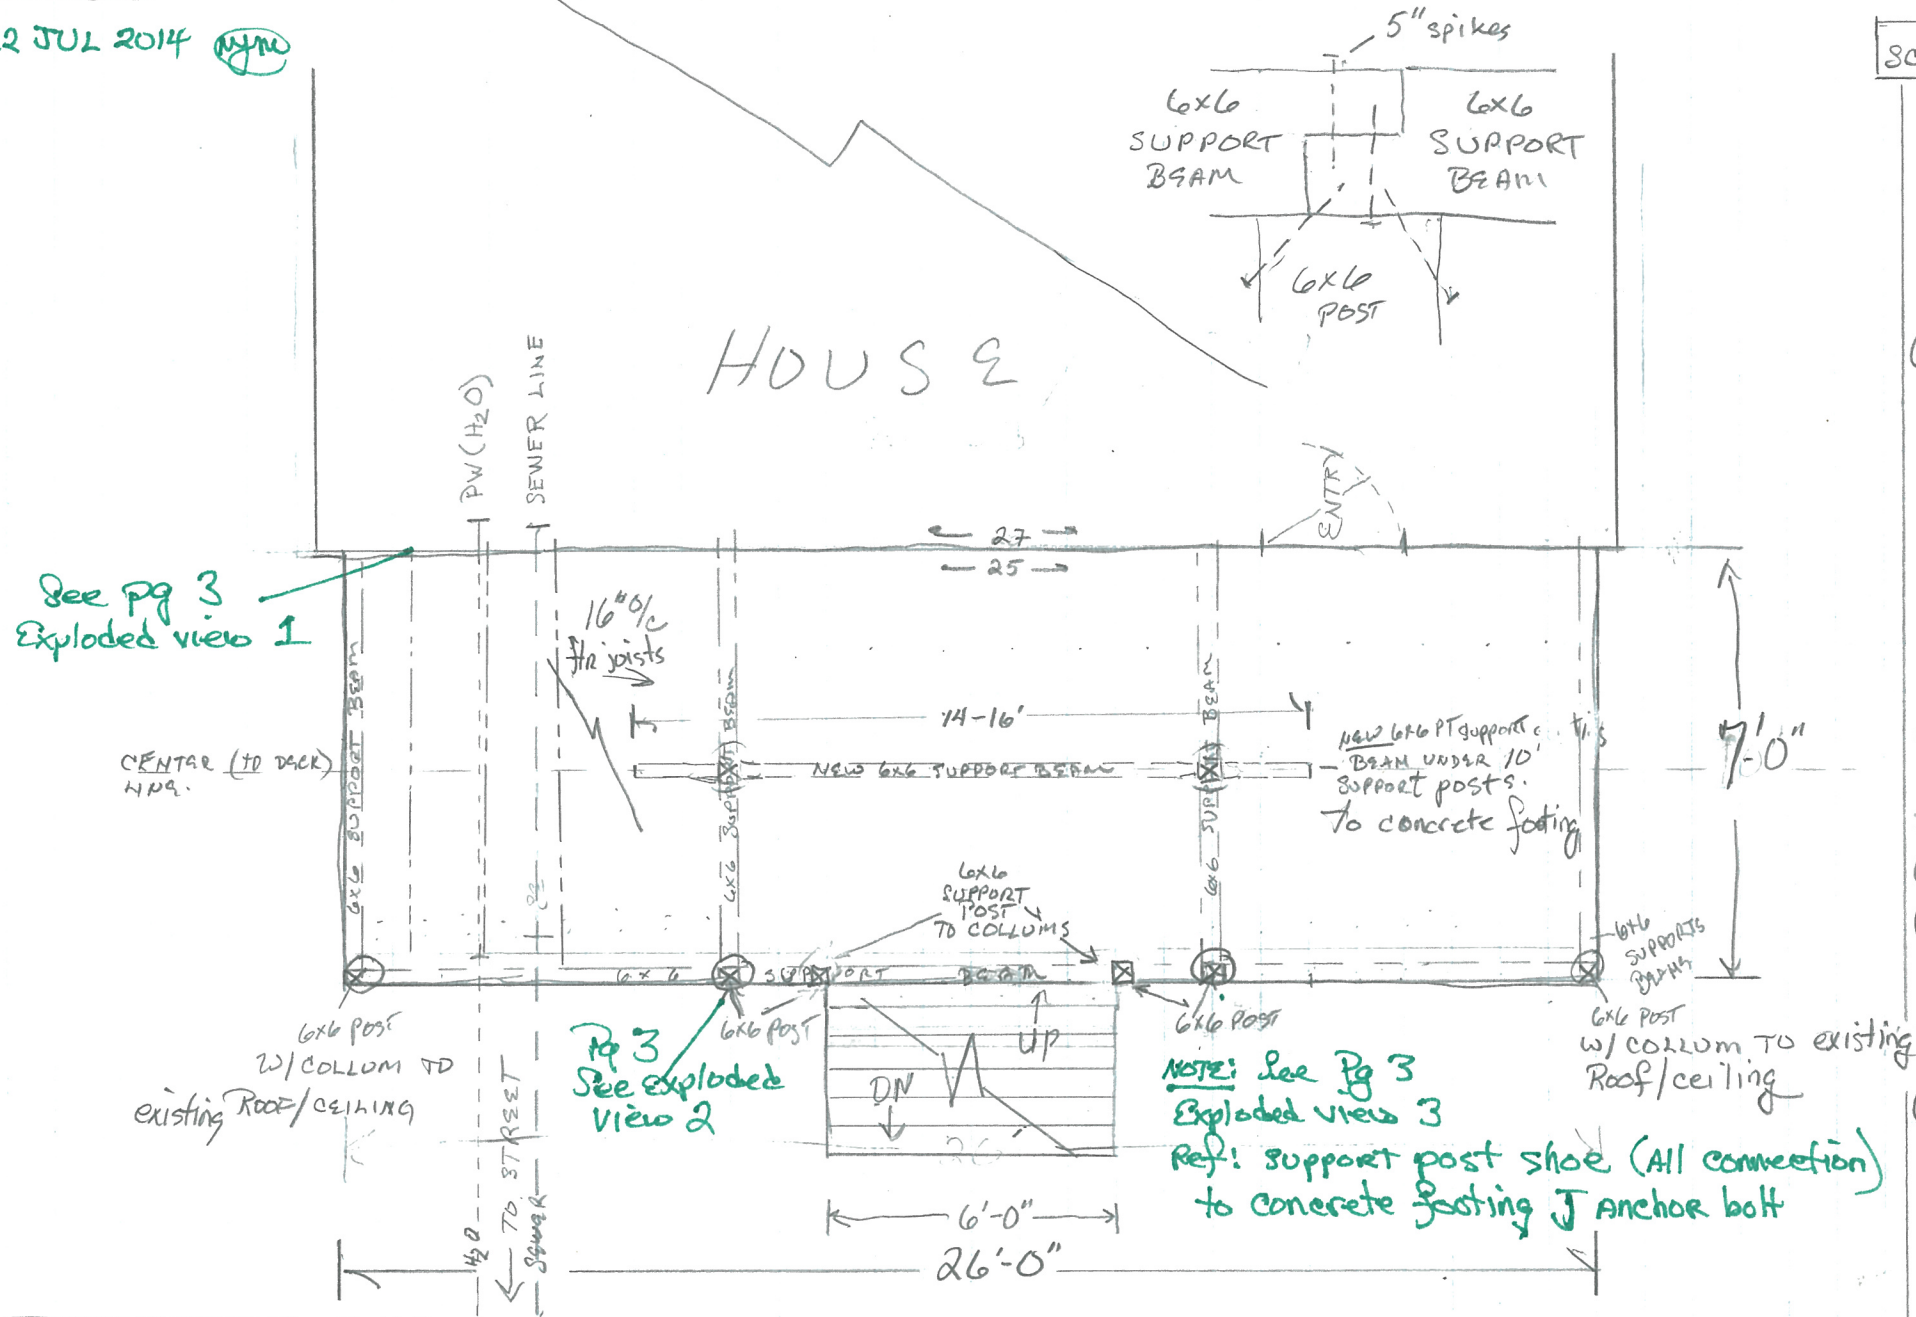 2 JUL 2014
5" spikes
6x6
SUPPORT
BEAM
6x6
SUPPORT
BEAM
6x6
POST
HOUSE
PW (H2O)
SEWER LINE
ENTRY
27
25
See pg 3
Exploded view 1
16" O/C
flr joists
14-16'
7'-0"
CENTER (TO DECK)
LINE.
NEW 6x6 SUPPORT BEAM
NEW 6x6 PT support
BEAM UNDER 10'
SUPPORT posts.
To concrete footing
6x6 SUPPORT BEAM
6x6 SUPPORT BEAM
6x6 SUPPORT BEAM
6x6
SUPPORT
POST
TO COLLUMS
6x6 SUPPORT BEAM
6x6
SUPPORTS
BEAMS
6x6 POST
W/COLLUM TO
existing ROOF/CEILING
6x6 POST
6x6 POST
6x6 POST
W/ COLLUM TO existing
Roof/ceiling
Pg 3
See exploded
View 2
UP
DN
NOTE: See Pg 3
Exploded view 3
Ref: support post shoe (All connection)
to concrete footing J Anchor bolt
H2O
TO STREET
SEWER
6'-0"
26'-0"